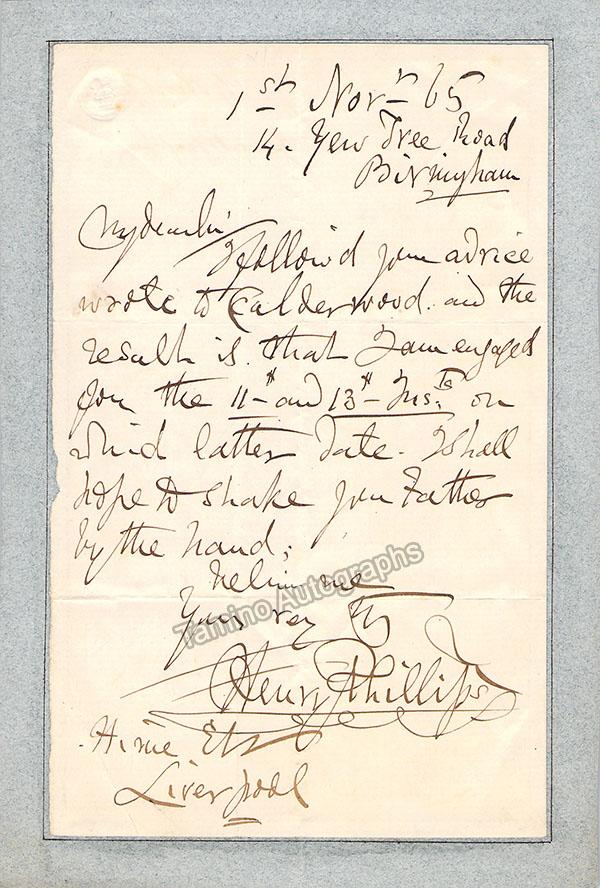 1st Novr 65
14. Yew Tree Road
Birmingham
My dear Sir
I follow'd your advice
wrote to Calderwood. and the
result is. that I am engaged
for the 11th and 13th Inst. on
which latter date. I shall
hope to shake your Father
by the hand;
believe me
Yours very try
Henry Phillips
Hime Esq
Liverpool
Tamino Autographs